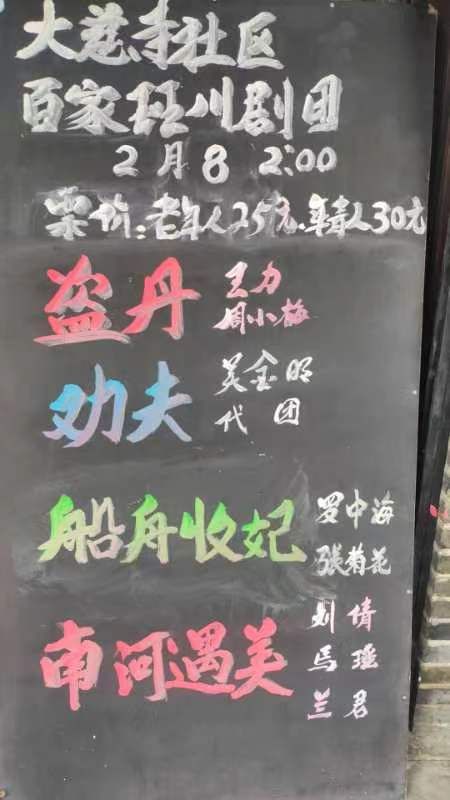 大慈寺社区
百家班川剧团
2月8 2:00
票价:老年人25元、年青人30元
盗丹 王力
周小梅
劝夫 吴金明
代团
船舟收妃 罗中海
張菊花
南河遇美 刘倩
馬瑶
兰君